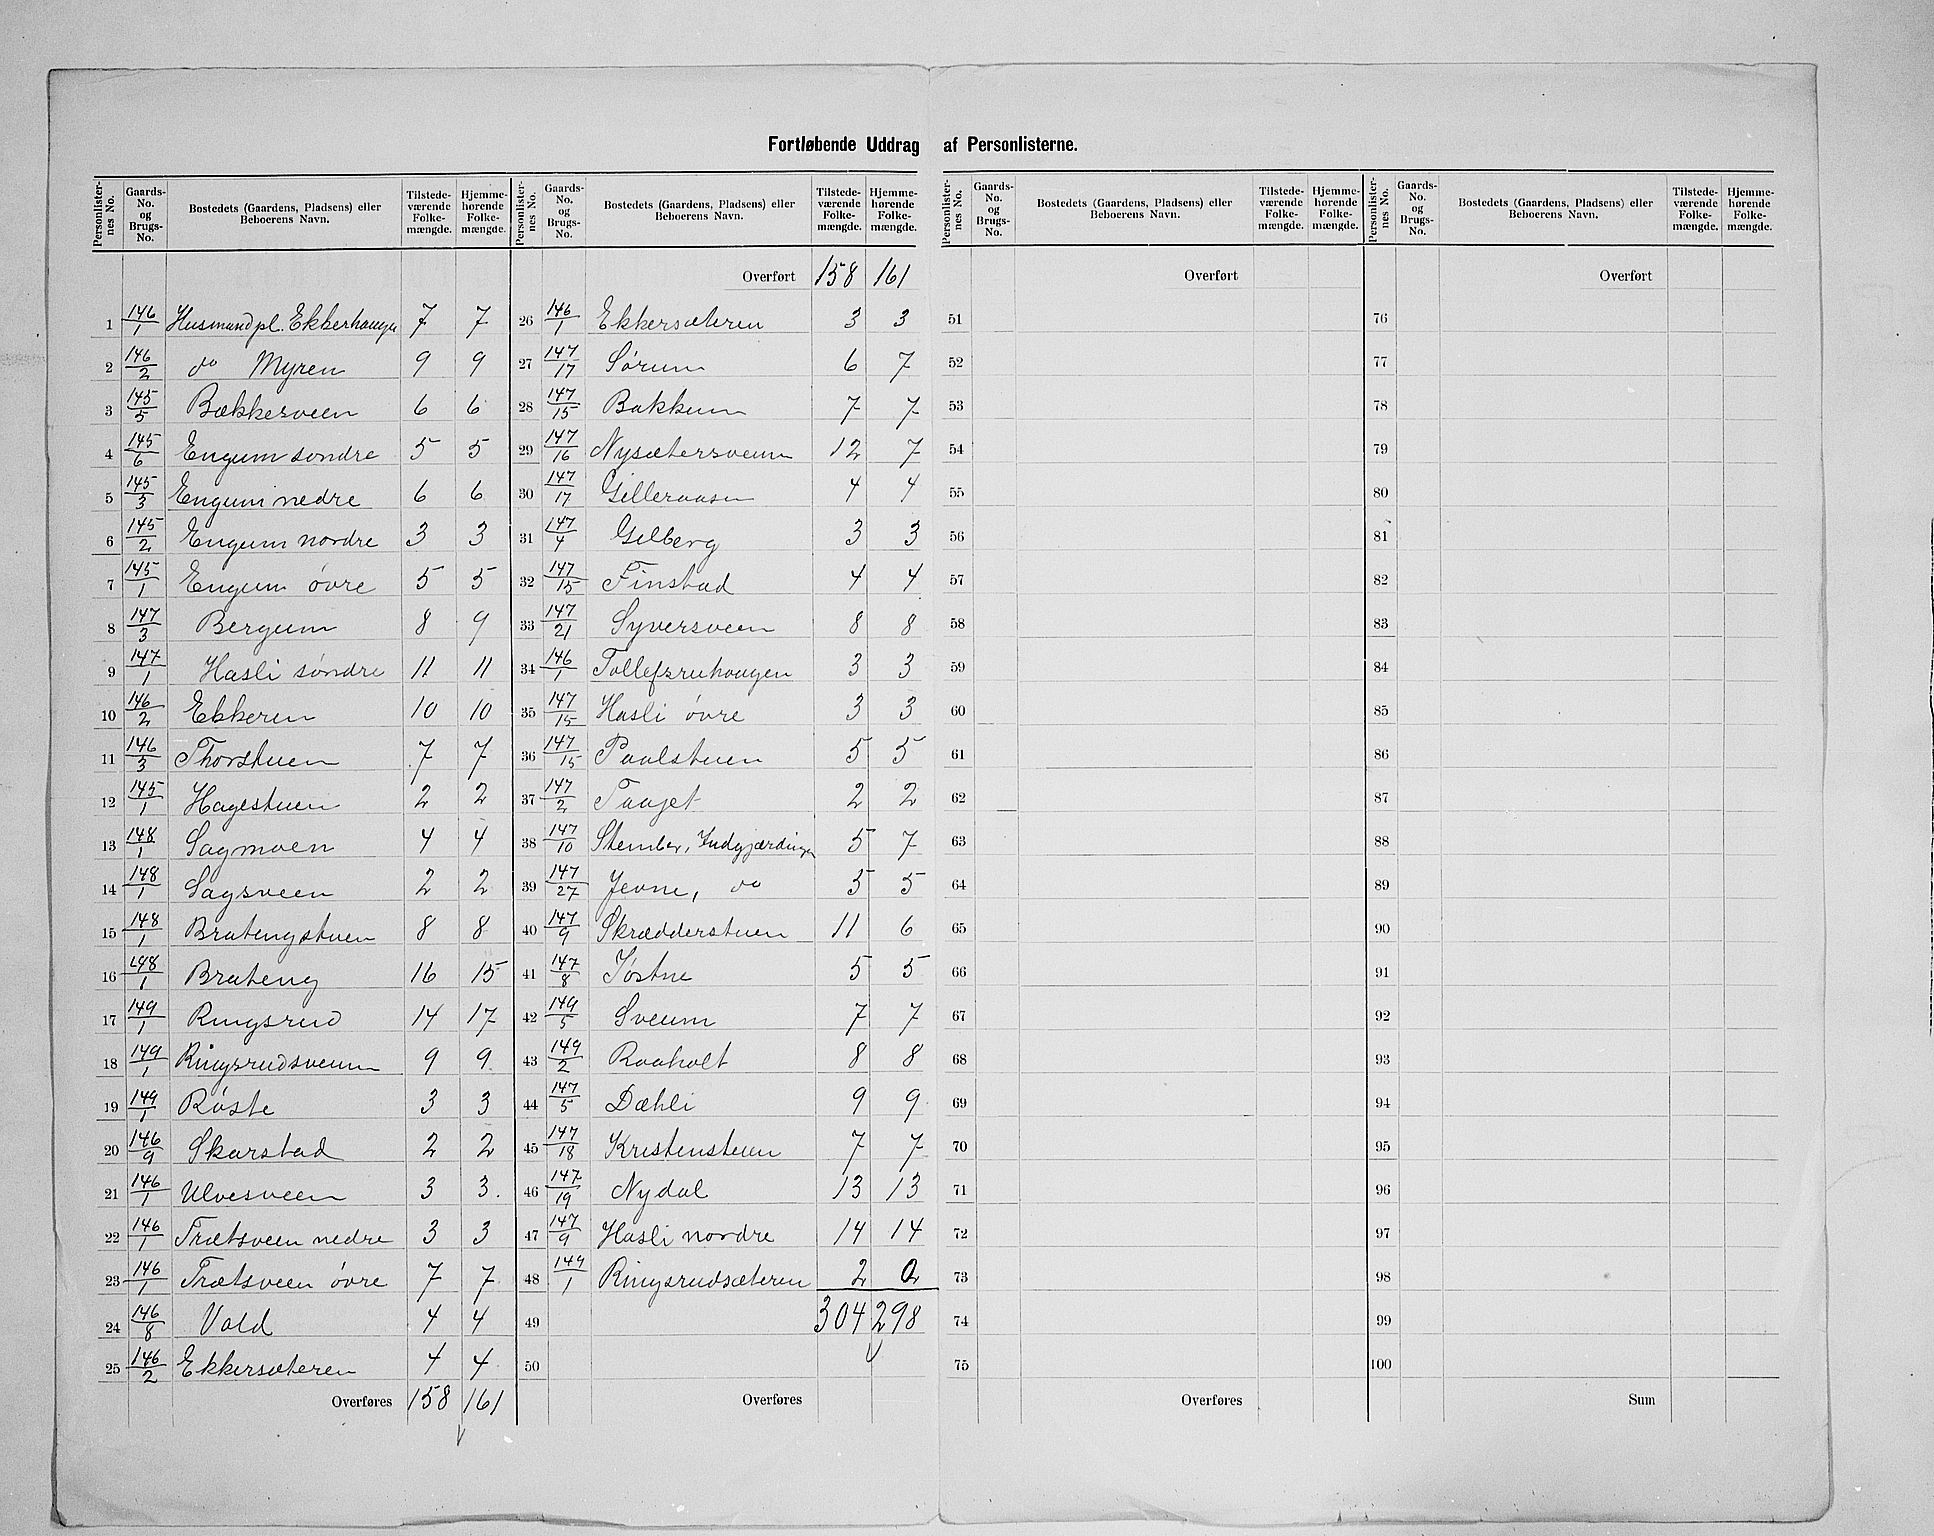 Fortløbende Uddrag af Personlisterne.
Personlister-nes No. | Gaards-No. og Brugs-No. | Bostedets (Gaardens, Pladsens) eller Beboerens Navn. | Tilstede-værende Folke-mængde. | Hjemme-hørende Folke-mængde.
1 146/1 Husmandpl. Ekkerhaugen 7 7
2 146/2 do Myren 9 9
3 145/5 Bækkesveen 6 6
4 145/6 Engum søndre 5 5
5 145/3 Engum nedre 6 6
6 145/2 Engum nordre 3 3
7 145/1 Engum øvre 5 5
8 147/3 Bergum 8 9
9 147/1 Hasli søndre 11 11
10 146/2 Ekkeren 10 10
11 146/3 Thorstuen 7 7
12 145/1 Hagestuen 2 2
13 148/1 Sagmoen 4 4
14 148/1 Sagsveen 2 2
15 148/1 Bratengstuen 8 8
16 148/1 Brateng 16 15
17 149/1 Ringsrud 14 17
18 149/1 Ringsrudsveen 9 9
19 149/1 Røste 3 3
20 146/9 Skarstad 2 2
21 146/1 Ulvesveen 3 3.
22 146/1 Trætsveen nedre 3 3
23 146/1 Trætsveen øvre 7 7
24 146/8 Vold 4 4
25 146/2 Ekkersæteren 4 4
Overføres 158 161
Personlister-nes No. | Gaards-No. og Brugs-No. | Bostedets (Gaardens, Pladsens) eller Beboerens Navn. | Tilstede-værende Folke-mængde. | Hjemme-hørende Folke-mængde.
Overført 158 161
26 146/1 Ekkersæteren 3 3
27 147/17 Sørum 6 7
28 147/15 Bakkum 7 7
29 147/16 Nysætersveen 12 7
30 147/17 Gilleraasen 4 4
31 147/4 Gilberg 3 3
32 147/15 Finstad 4 4
33 147/21 Syversveen 8 8
34 146/1 Tollefsruhaugen 3 3
35 147/15 Hasli øvre 3 3
36 147/15 Paalstuen 5 5
37 147/2 Taajet 2 2
38 147/10 Stember, Indgjærdingen 5 7
39 147/27 Jevne, do 5 5
40 147/9 Skrædderstuen 11 6
41 147/8 Jøstne 5 5
42 149/5 Sveum 7 7
43 149/2 Raaholt 8 8
44 147/5 Dæhli 9 9
45 147/18 Kristenstuen 7 7
46 147/19 Nydal 13 13
47 147/9 Hasli nordre 14 14
48 149/1 Ringsrudsæteren 2 0
49 304 298
50
Overføres
Personlister-nes No. | Gaards-No. og Brugs-No. | Bostedets (Gaardens, Pladsens) eller Beboerens Navn. | Tilstede-værende Folke-mængde. | Hjemme-hørende Folke-mængde.
Overført
51
52
53
54
55
56
57
58
59
60
61
62
63
64
65
66
67
68
69
70
71
72
73
74
75
Overføres
Personlister-nes No. | Gaards-No. og Brugs-No. | Bostedets (Gaardens, Pladsens) eller Beboerens Navn. | Tilstede-værende Folke-mængde. | Hjemme-hørende Folke-mængde.
Overført
76
77
78
79
80
81
82
83
84
85
86
87
88
89
90
91
92
93
94
95
96
97
98
99
100
Sum